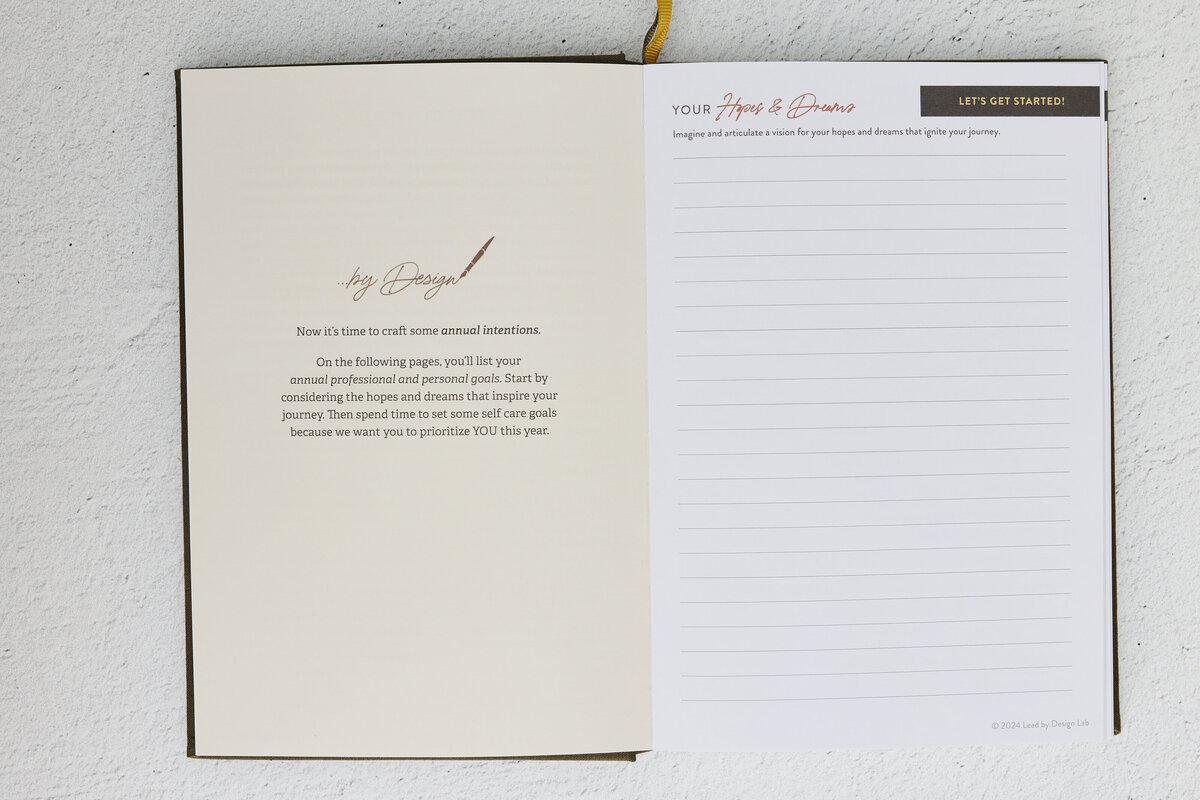 ...by Design
Now it's time to craft some annual intentions.
On the following pages, you'll list your
annual professional and personal goals. Start by
considering the hopes and dreams that inspire your
journey. Then spend time to set some self care goals
because we want you to prioritize YOU this year.
YOUR Hopes & Dreams
LET'S GET STARTED!
Imagine and articulate a vision for your hopes and dreams that ignite your journey.
© 2024 Lead by Design Lab